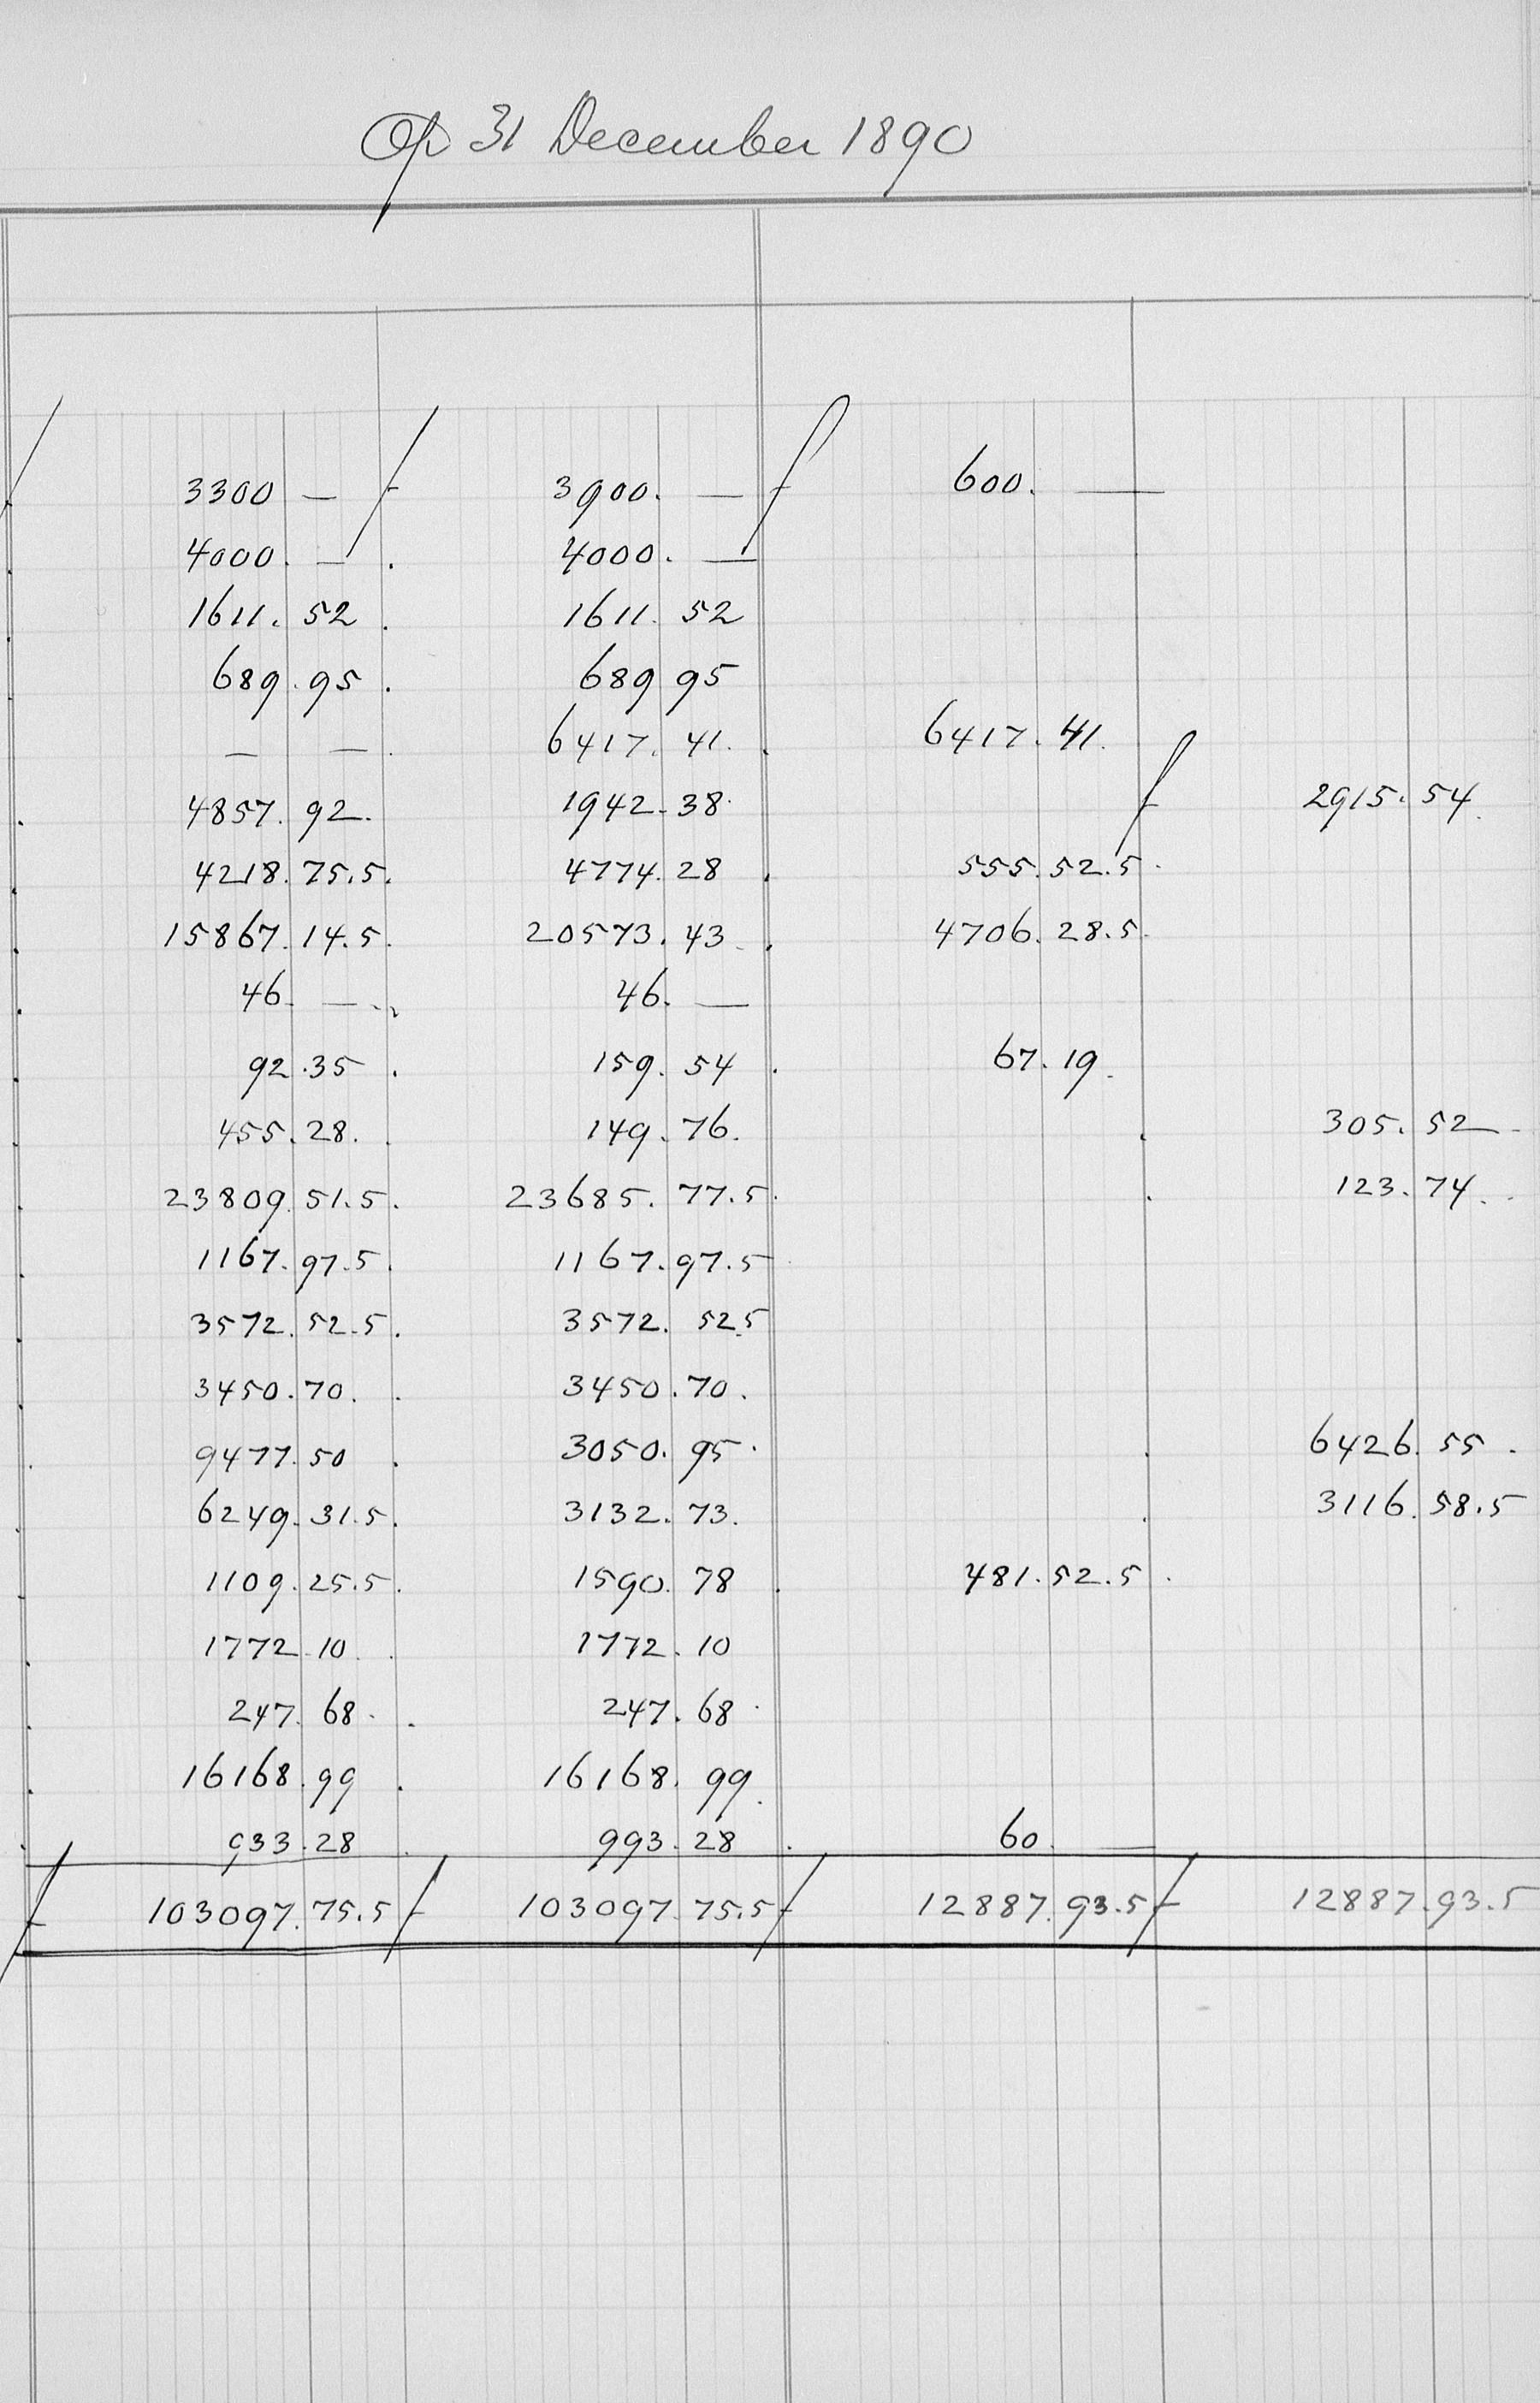 Op 31 December 1890
f 3300 — f 3900. — f 600. —
4000. — 4000. —
1611. 52 1611. 52
689. 95 689 95
— — 6417. 41. 6417. 41.
4857. 92. 1942. 38. f 2915. 54.
4218. 75.5. 4774. 28 555. 52.5
15867. 14.5. 20573. 43 4706. 28.5.
46. — 46. —
92. 35 159. 54 67. 19.
455. 28. 149. 76. 305. 52
23809. 51.5. 23685. 77.5. 123. 74.
1167. 97.5. 1167. 97.5
3572. 52.5. 3572. 52.5
3450. 70. 3450. 70.
9477. 50 3050. 95. 6426. 55
6249. 31.5. 3132. 73. 3116. 58.5
1109. 25.5. 1590. 78 481. 52.5
1772. 10. 1772. 10
247. 68. 247. 68
16168. 99 16168. 99.
933. 28 993. 28 60. —
f 103097. 75.5 f 103097. 75.5 f 12887. 93.5 f 12887. 93.5